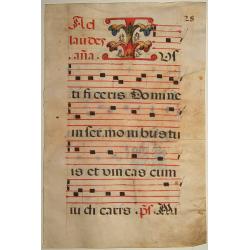 28
Ad
laudes
aña. T us
ti fi ceris Domine
in ser mo ni bus tu
is et vin cas cum
iu di caris. ps. Mi